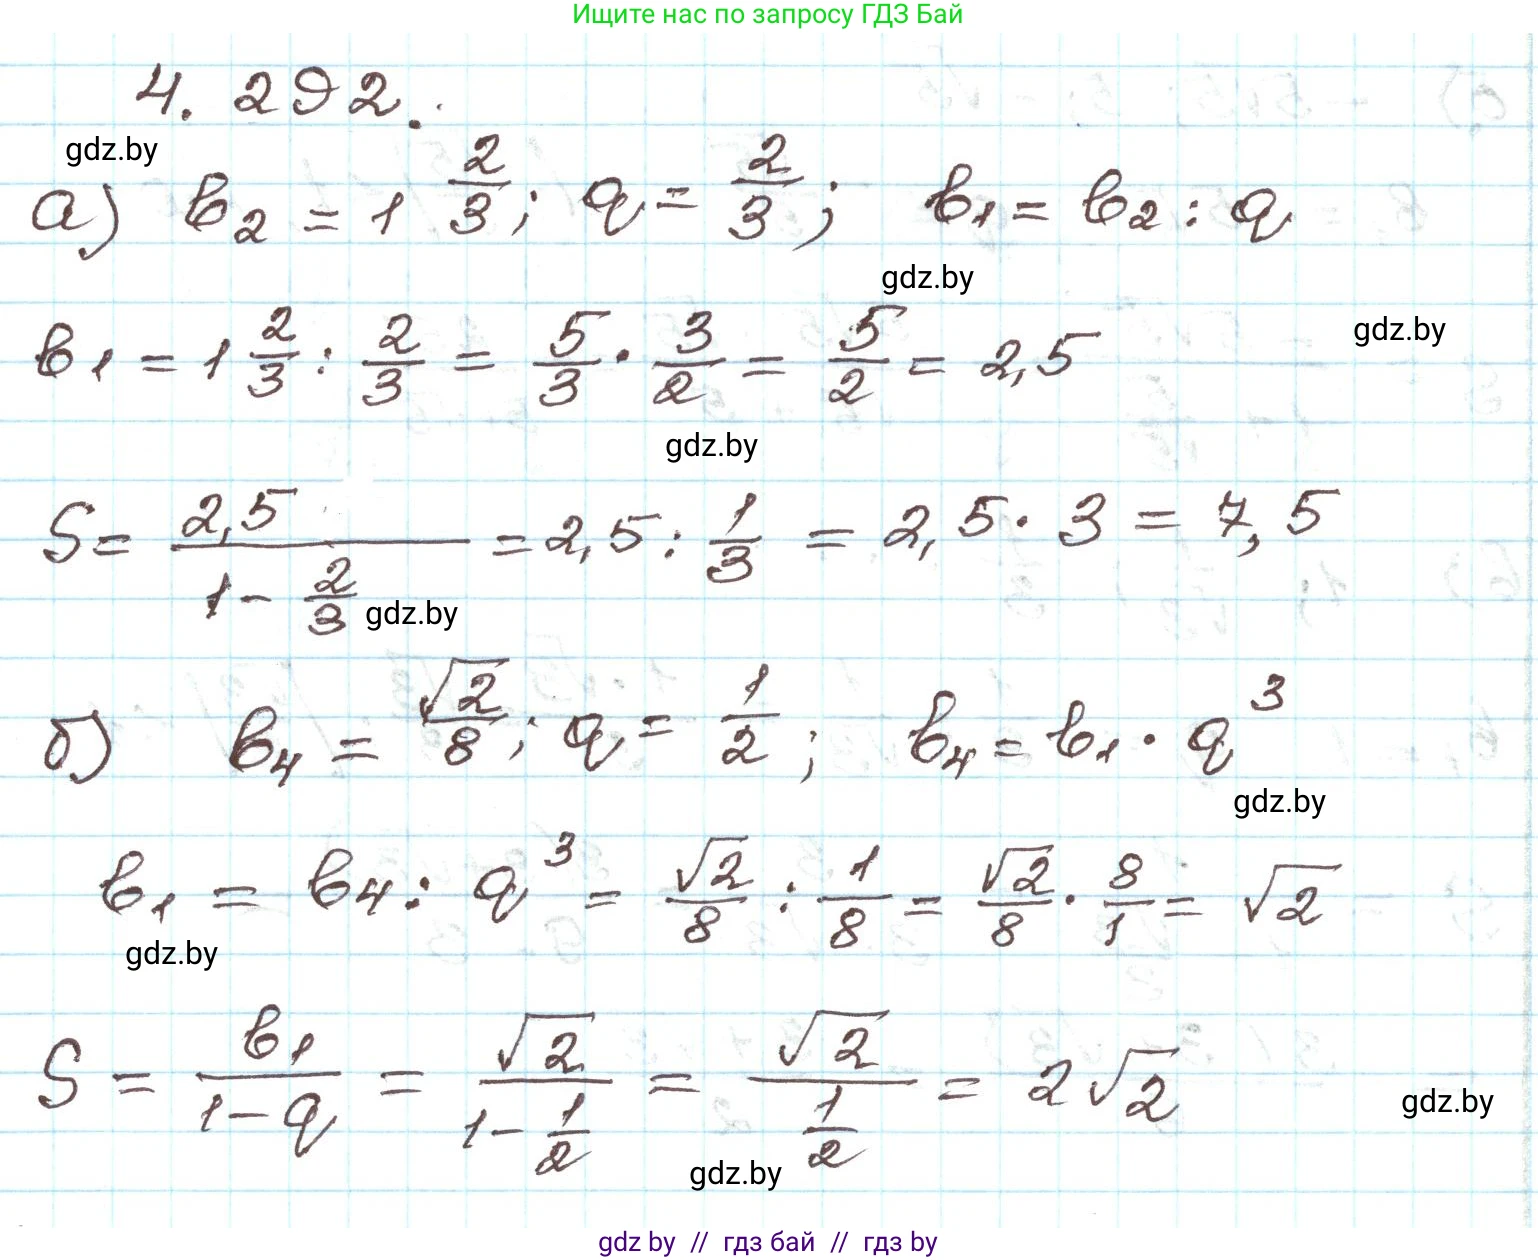 Ищите нас по запросу ГДЗ Бай
4.292.
gdz.by
а) b₂ = 1 2/3; q = 2/3; b₁ = b₂ : q
gdz.by
gdz.by
b₁ = 1 2/3 : 2/3 = 5/3 · 3/2 = 5/2 = 2,5
gdz.by
S = 2,5/(1 - 2/3) = 2,5 : 1/3 = 2,5 · 3 = 7,5
gdz.by
б) b₄ = √2/8; q = 1/2; b₄ = b₁ · q³
gdz.by
b₁ = b₄ : q³ = √2/8 : 1/8 = √2/8 · 8/1 = √2
gdz.by
S = b₁/(1 - q) = √2/(1 - 1/2) = √2/(1/2) = 2√2
gdz.by
gdz.by
gdz by // гдз бай // гдз by